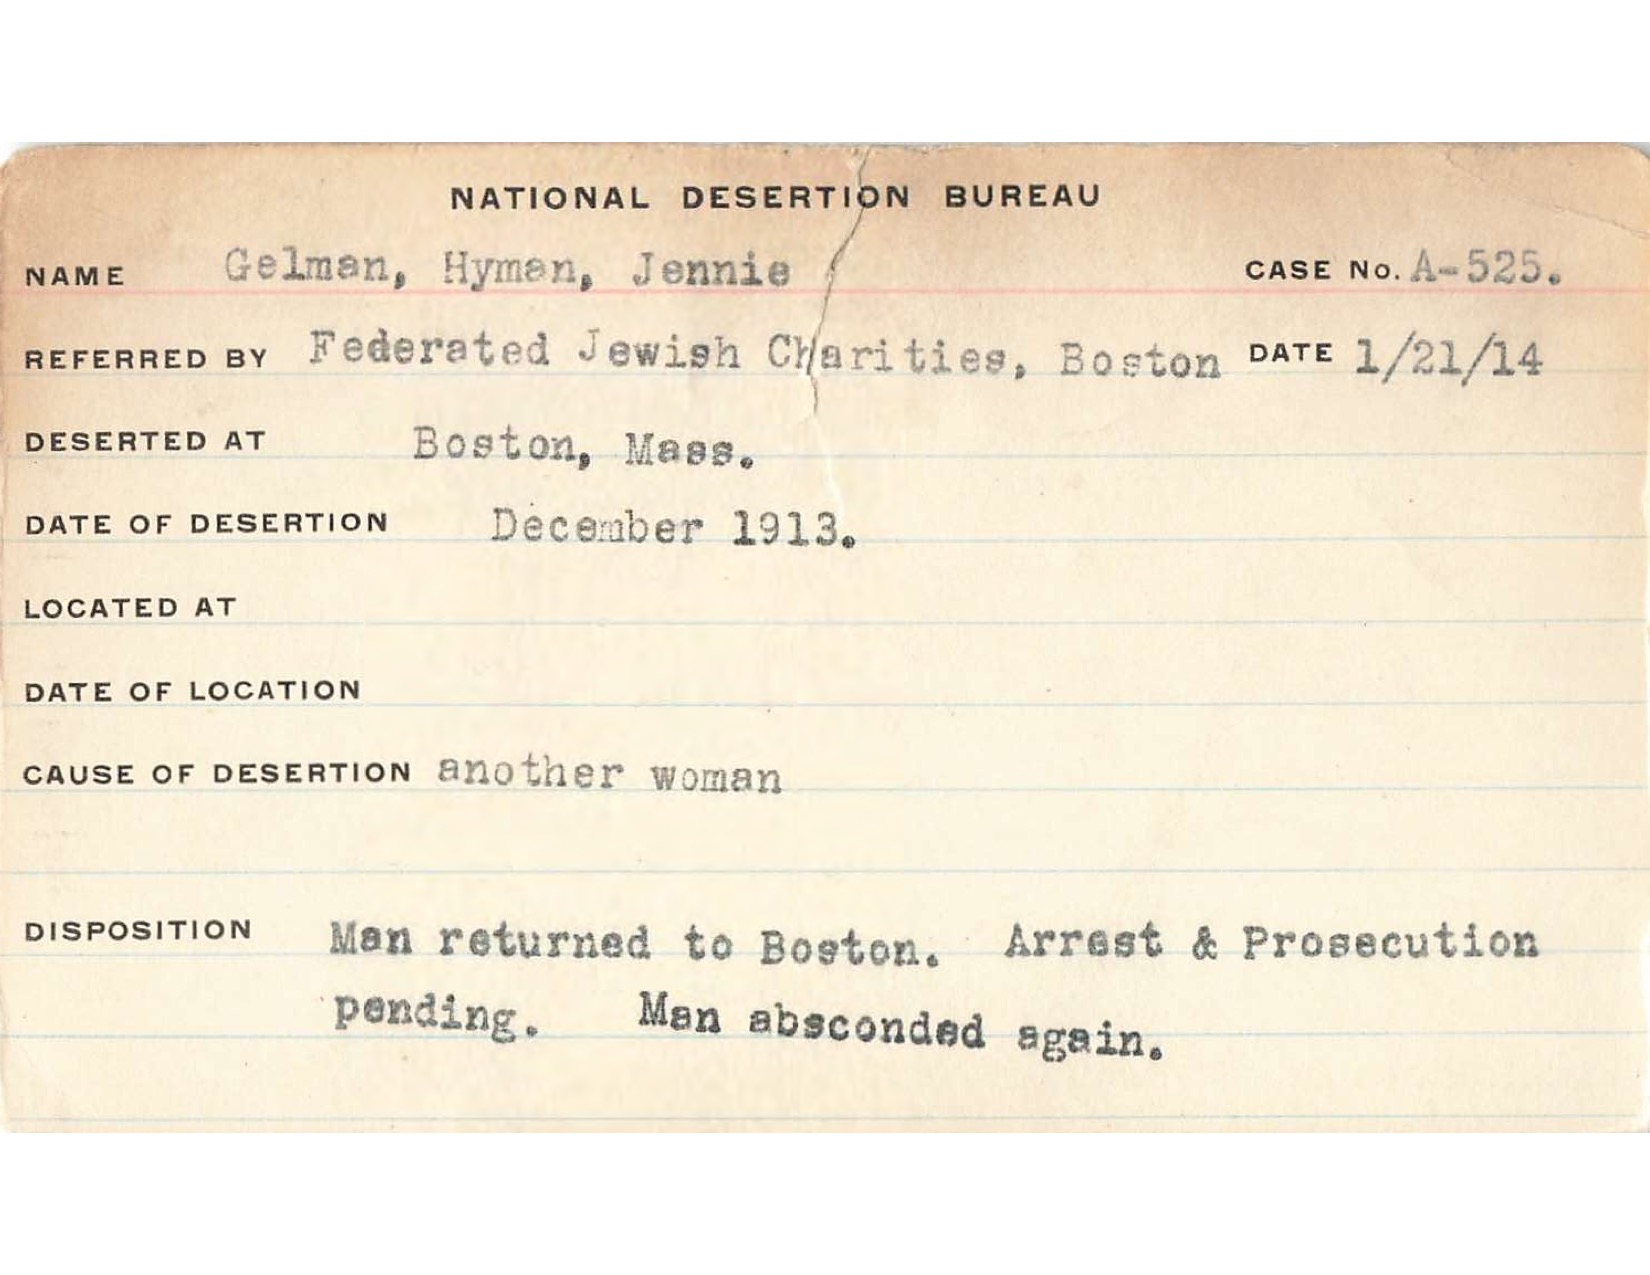 NATIONAL DESERTION BUREAU
NAME Gelman, Hyman, Jennie CASE No. A-525.
REFERRED BY Federated Jewish Charities, Boston DATE 1/21/14
DESERTED AT Boston, Mass.
DATE OF DESERTION December 1913.
LOCATED AT
DATE OF LOCATION
CAUSE OF DESERTION another woman
DISPOSITION Man returned to Boston. Arrest & Prosecution
pending. Man absconded again.